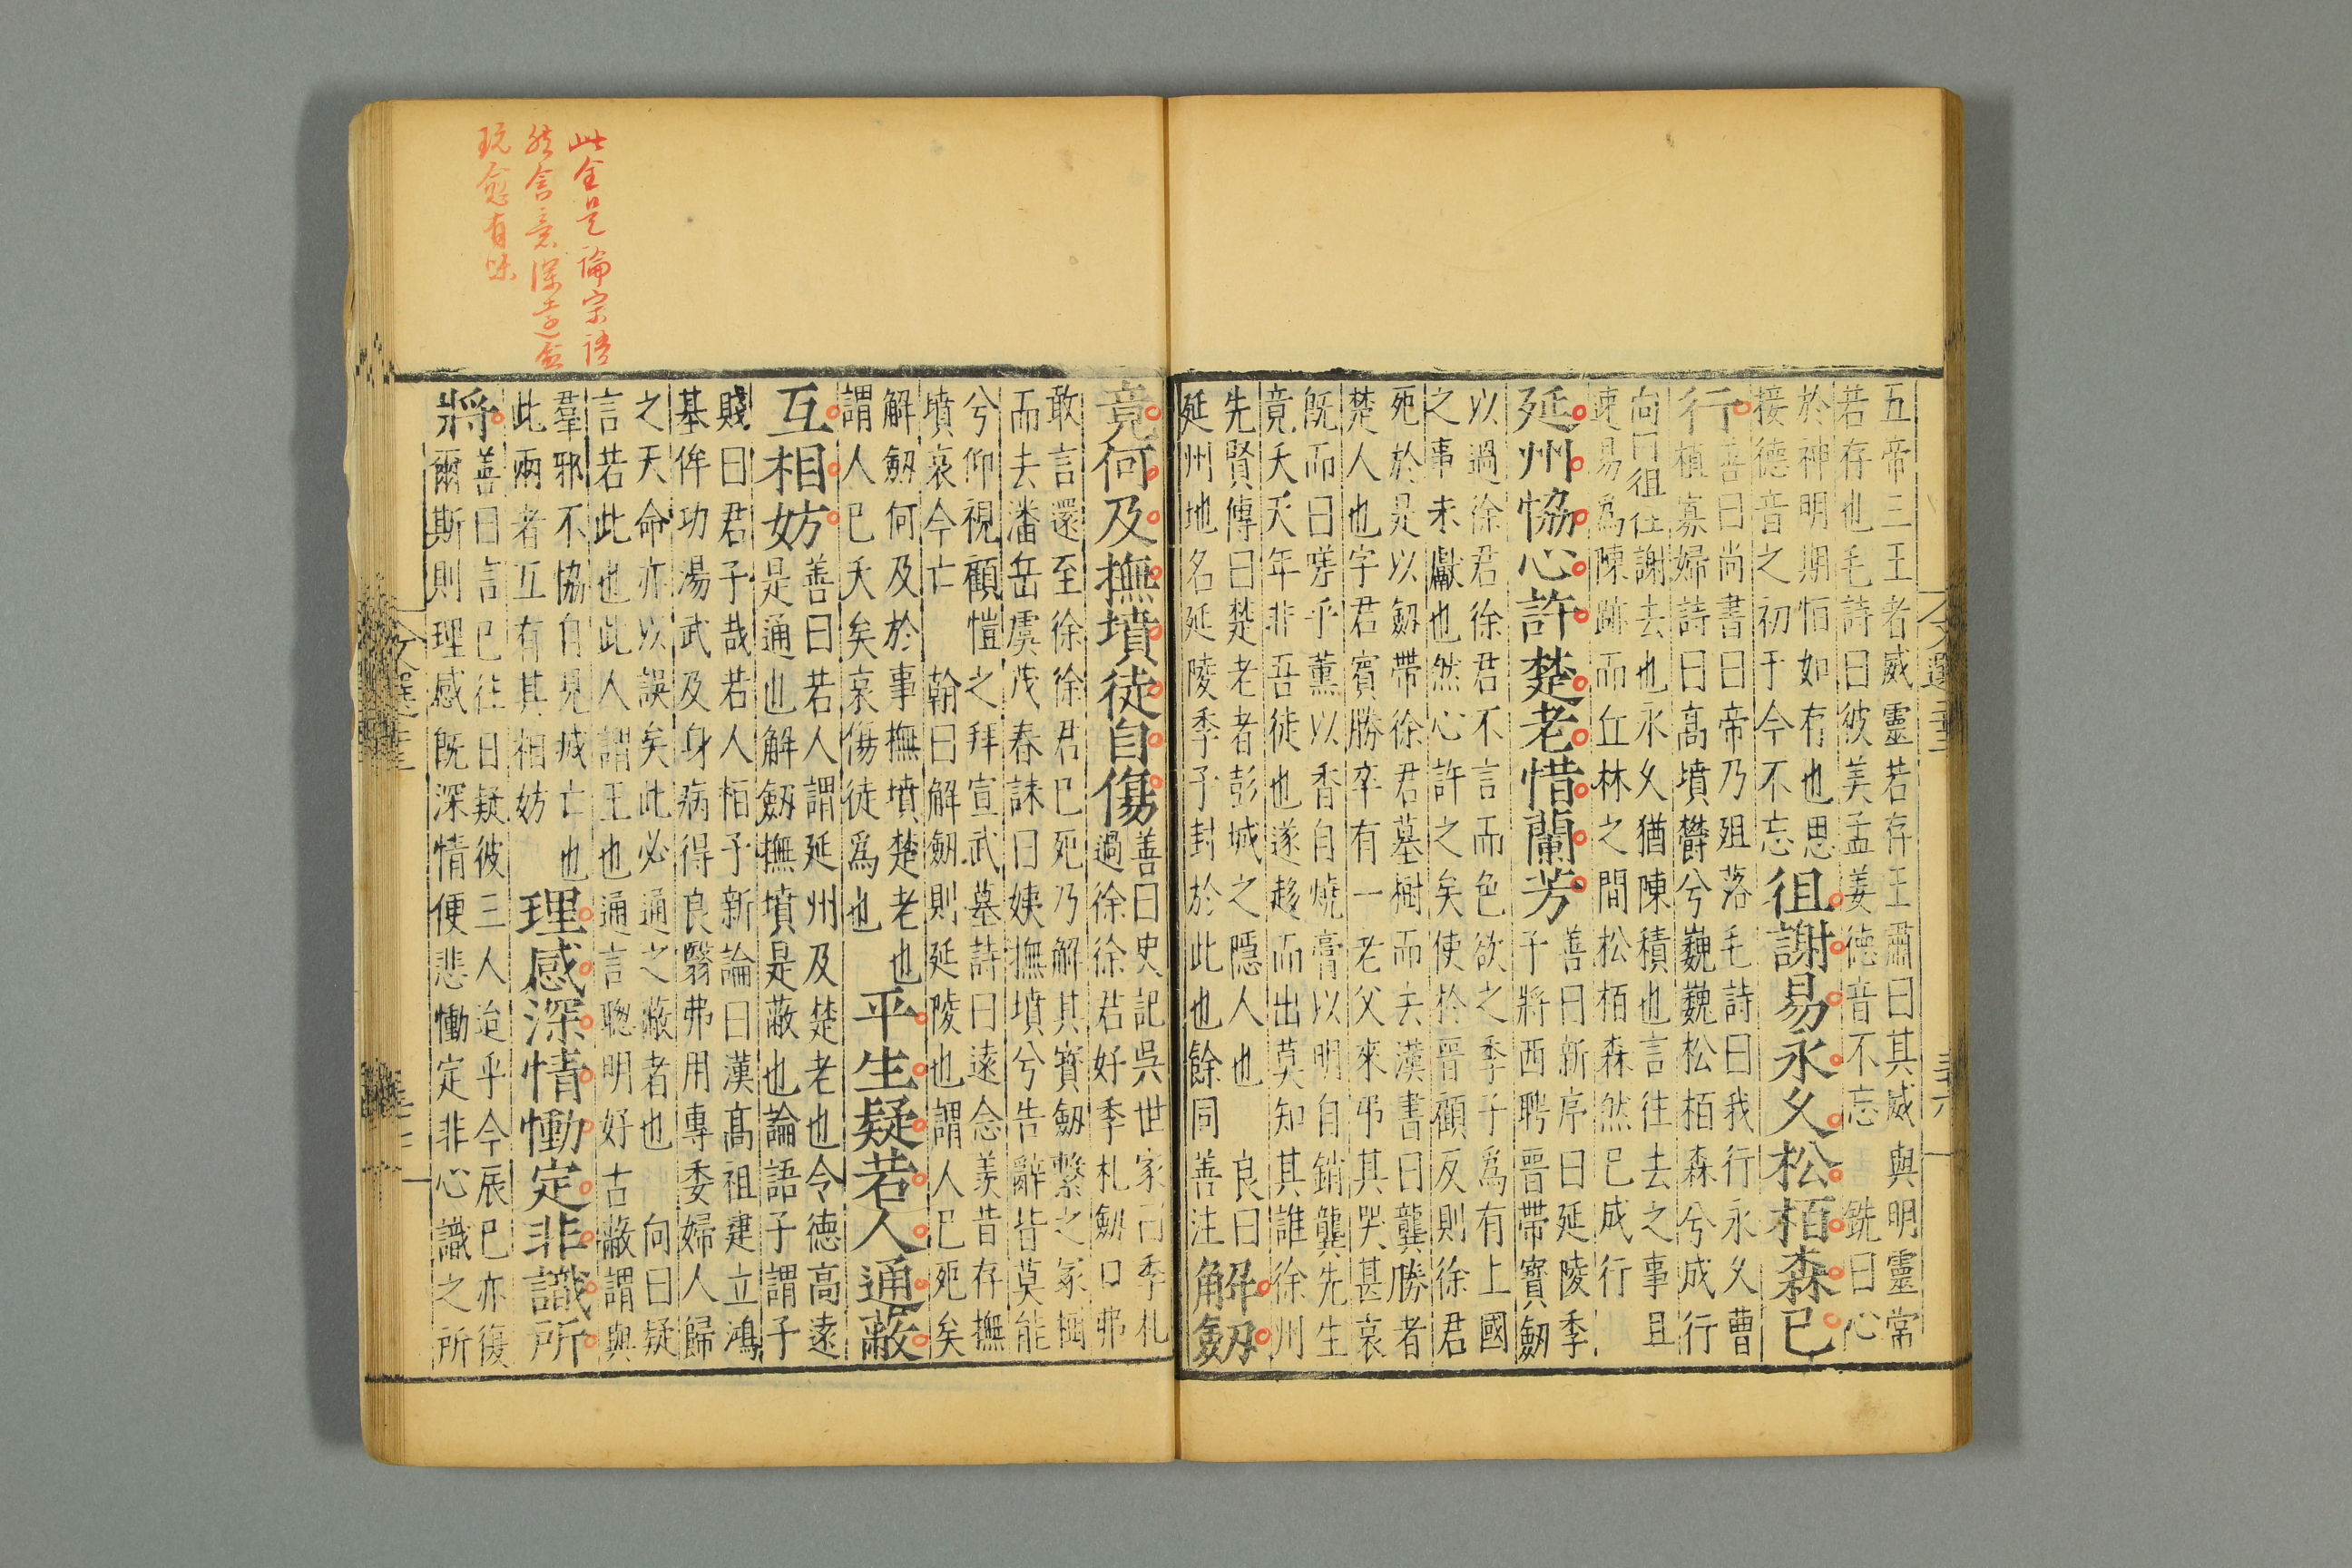 五帝三王者威靈若存王肅曰其威與明靈常
若存也毛詩曰彼美孟姜德音不忘 銑曰心
於神明期恒如存也思
接德音之初于今不忘
徂謝易永久松栢森已
行
善曰尚書曰帝乃殂落毛詩曰我行永久曹
植寡婦詩曰高墳欝兮巍巍松栢森兮成行
向曰徂往謝去也永久猶陳積也言往去之事且
速易爲陳跡而丘林之間松栢森然已成行
延州恊心許楚老惜蘭芳
善曰新序曰延陵季
子將西聘晉帶寶劒
以過徐君徐君不言而色欲之季子爲有上國
之事未獻也然心許之矣使於晉顧反則徐君
死於是以劒帶徐君墓樹而去漢書曰龔勝者
楚人也字君賓勝卒有一老父來弔其哭甚哀
旣而曰嗟乎薰以香自燒膏以明自銷龔先生
竟夭天年非吾徒也遂趍而出莫知其誰徐州
先賢傳曰楚老者彭城之隱人也 良曰
延州地名延陵季子封於此也餘同善注
解劒
竟何及撫墳徒自傷
善曰史記吳世家曰季札
過徐徐君好季札劒口弗
敢言還至徐徐君已死乃解其寶劒繫之冢樹
而去潘岳虞茂春誄曰姨撫墳兮告辭皆莫能
兮仰視顧愷之拜宣武墓詩曰遠念羨昔存撫
墳哀今亡 翰曰解劒則延陵也謂人已死矣
解劒何及於事撫墳楚老也
謂人已夭矣哀傷徒爲也
平生疑若人通蔽
互相妨
善曰若人謂延州及楚老也令德高遠
是通也解劒撫墳是蔽也論語子謂子
賤曰君子哉若人桓子新論曰漢高祖建立鴻
基侔功湯武及身病得良醫弗用專委婦人歸
之天命亦以誤矣此必通之蔽者也 向曰疑
言若此也此人謂王也通言聰明好古蔽謂與
羣邪不恊自見城亡也
此兩者互有其相妨
理感深情慟定非識所
將
善曰言已往日疑彼三人迨乎今辰已亦復
爾斯則理感旣深情便悲慟定非心識之所
此全是論宗語
然含意深遠愈
玩愈有味